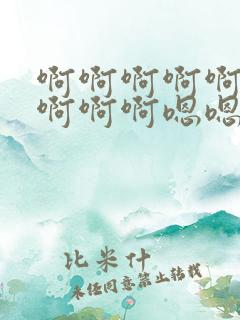 啊啊啊啊啊
啊啊啊嗯嗯
比米什
未经同意禁止转载